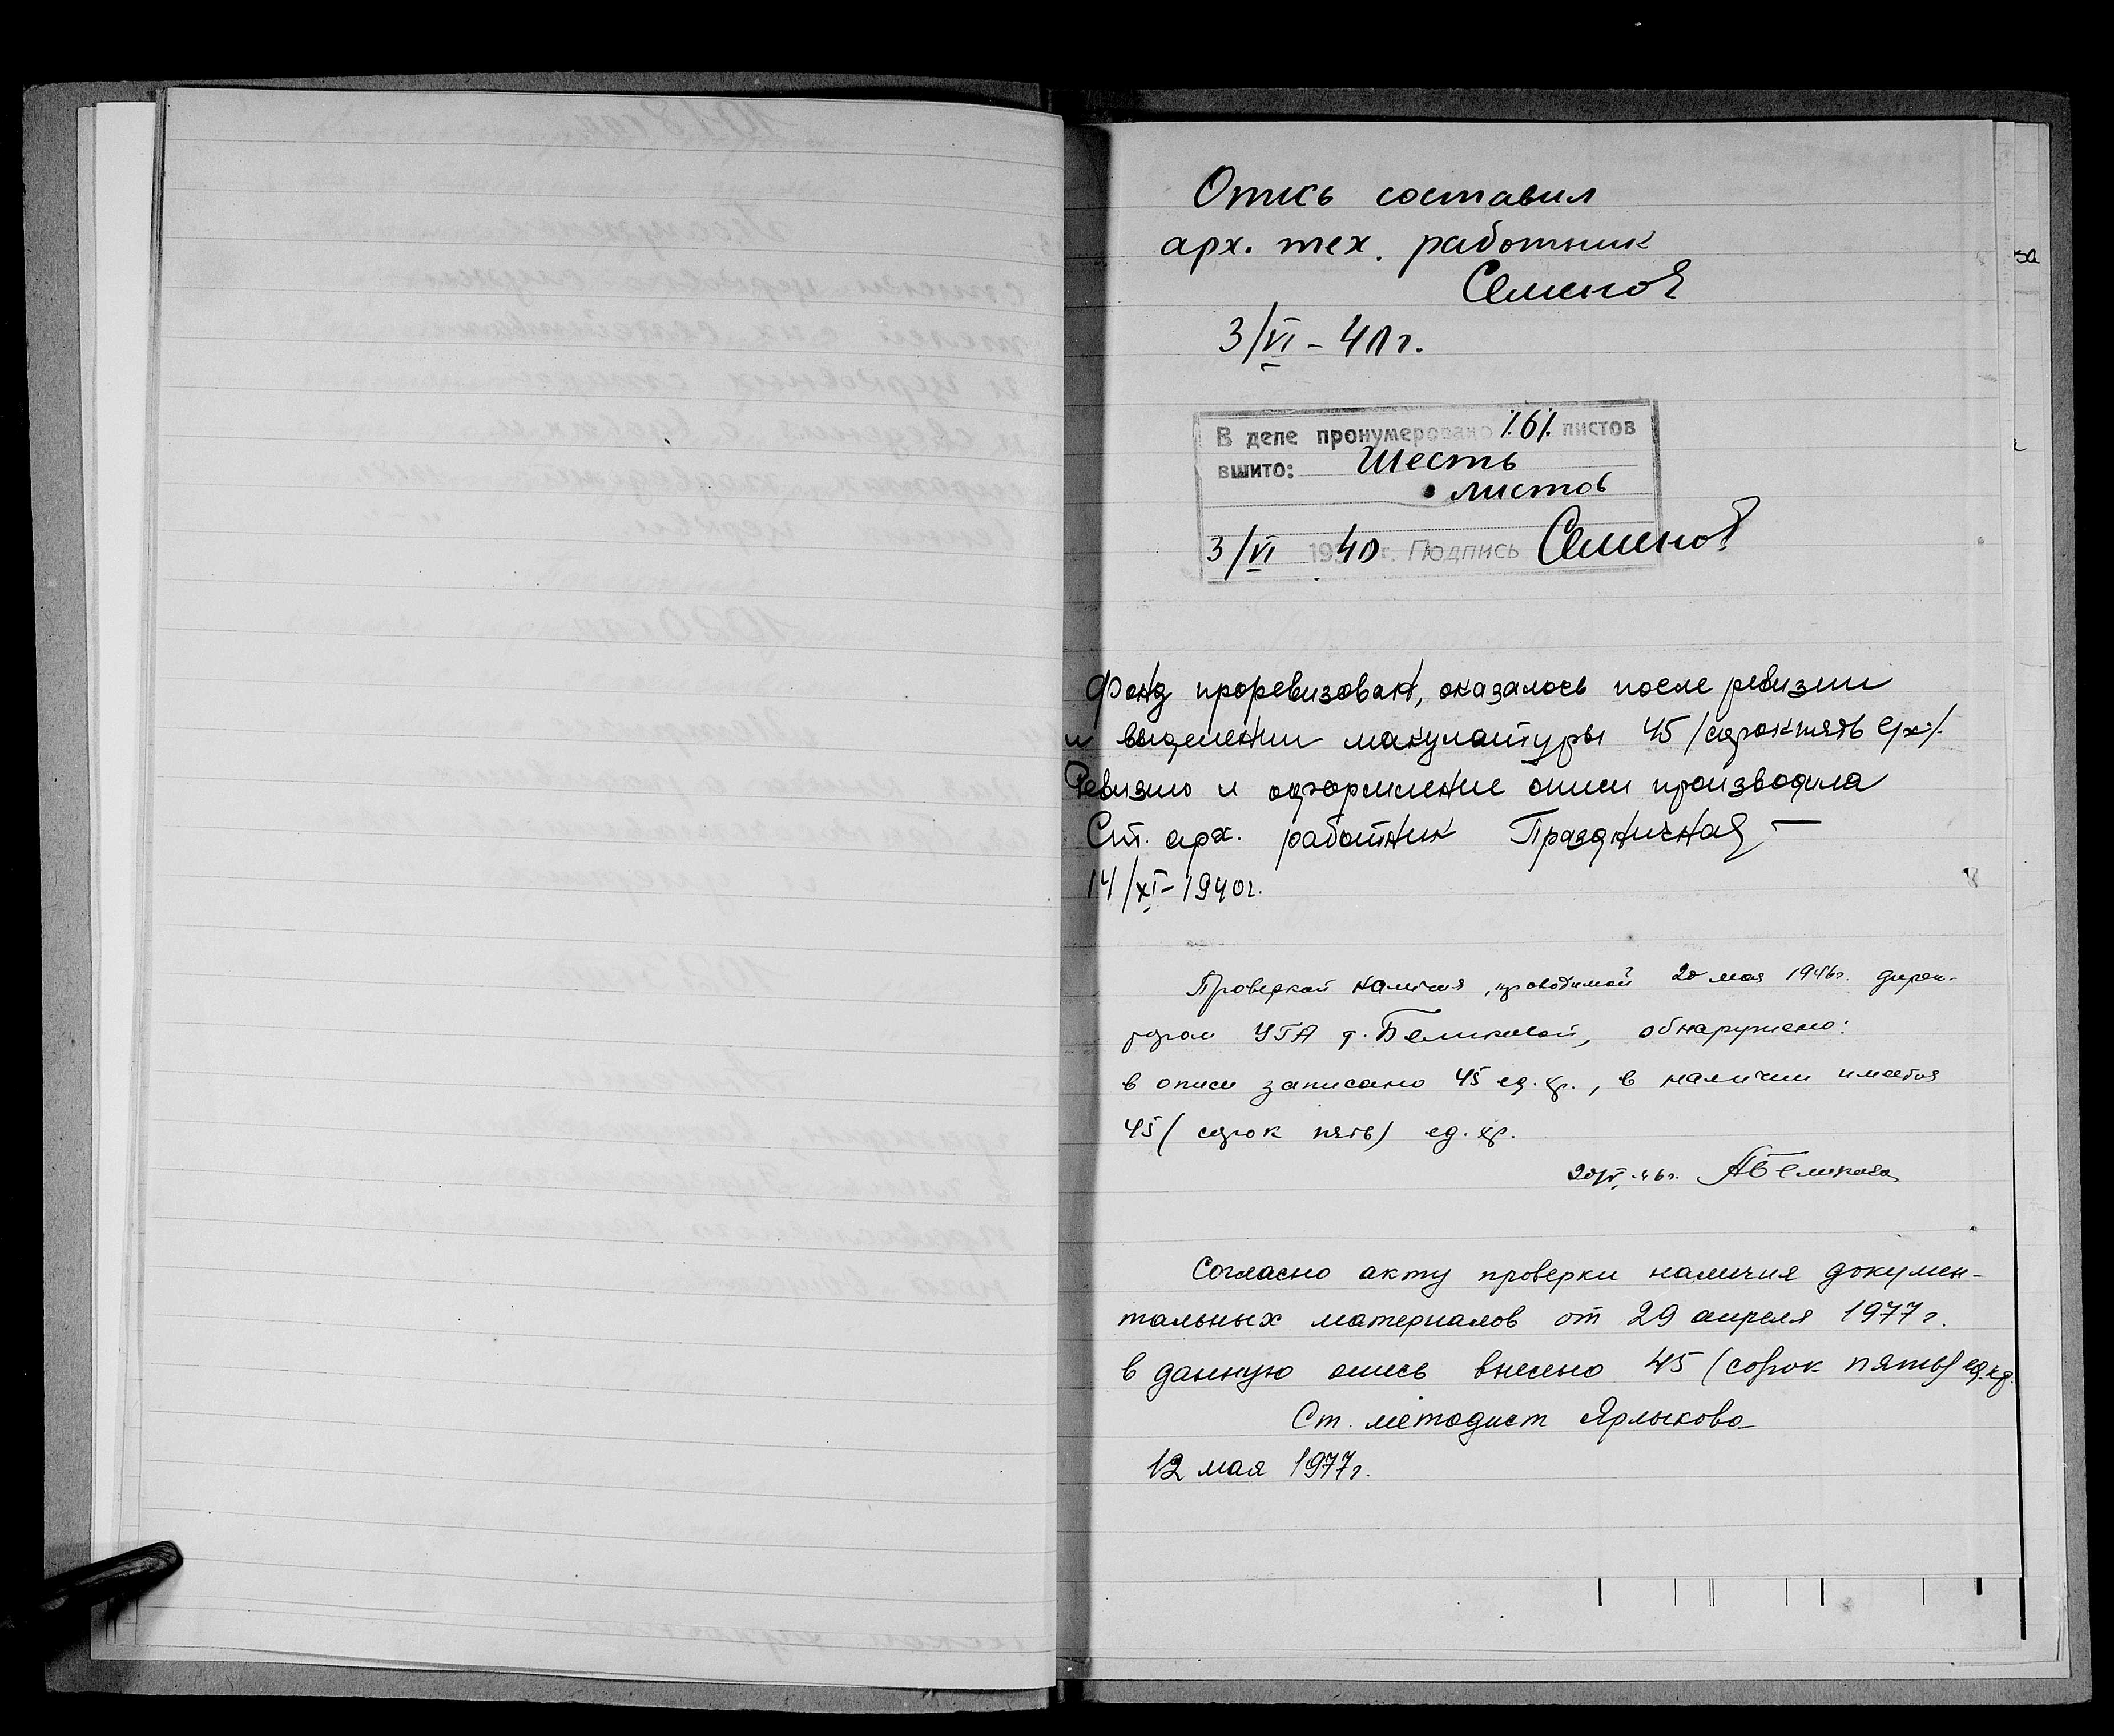 Опись составил
арх. тех. работник
Семенов
3/VI - 40 г.
В деле пронумеровано /6/ листов
вшито: Шесть
листов
3/VI 1940 г. Подпись Семенов
Фонд проревизован, оказалось после ревизии
и выделении макулатуры 45 /сорок пять ех/.
Ревизию и оформление описи производила
Ст. арх. работник Праздничная
14/XI - 1940 г.
Проверкой наличия, проводимой 20 мая 1946 г. дирек-
тором УГА т. Беликовой, обнаружено:
в описи записано 45 ед. хр., в наличии имеется
45 (сорок пять) ед. хр.
20/V-46 г. АБеликова
Согласно акту проверки наличия докумен-
тальных материалов от 29 апреля 1977 г.
в данную опись внесено 45 (сорок пять) ед. хр.
Ст. методист Ярлыкова
12 мая 1977 г.